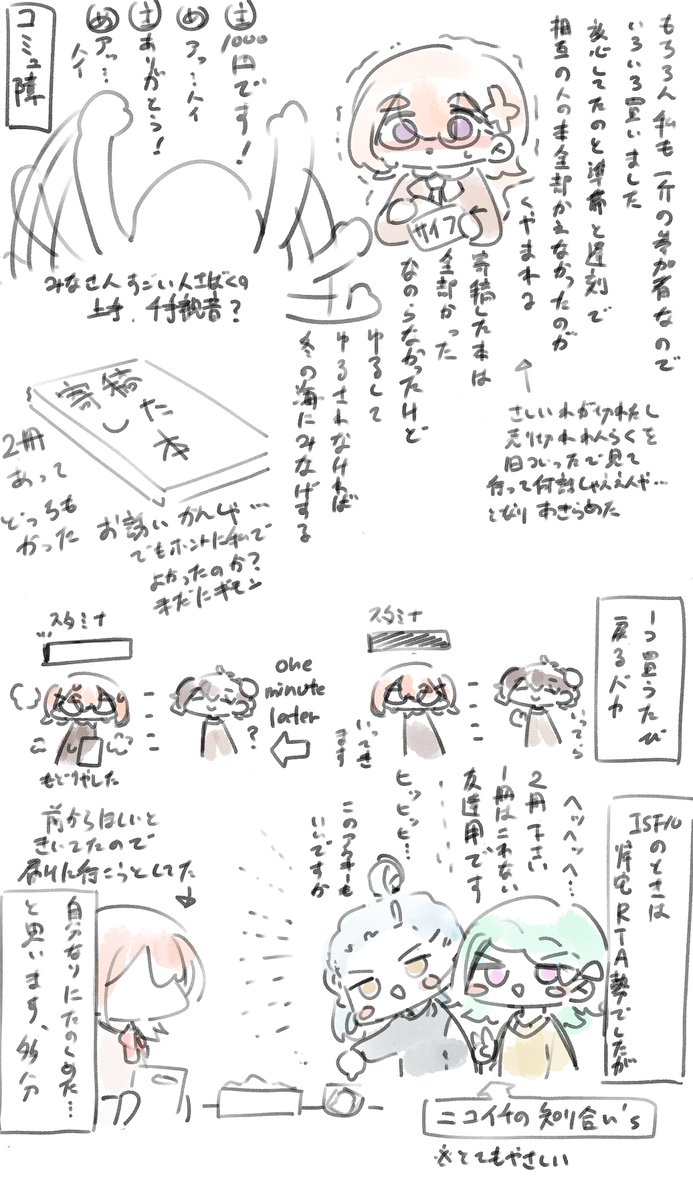 もちろん私も一介の参加者なので
いろいろ買いました
安心してたのと準備と遅刻で
相互の人の本全部かえなかったのが
くやまれる
寄稿した本は
全部かった
なのらなかったけど
ゆるして
ゆるされなければ
冬の海にみなげする
サイフ
さいしょ
売り切れれんらくを
旧ついったで見て
行って何話しゃええんや…
となり あきらめた
コミュ障
主 1000円です!
め アッ…ハイ
主 ありがとう!
め アッ…
ハイ
みなさんすごい人さばくの
上手、千手観音?
寄稿
した
本
2冊
あって
どっちも
かった
お誘いかんしゃ…
でもホントに私で
よかったのか?
まだにギモン
1つ買うたび
戻るバカ
スタミナ
いってら
いってき
ます
one
minute
later
スタミナ
?
もどりやした
ISF10のときは
帰宅RTA勢でしたが
ヘッヘッヘ…
2冊下さい
1冊はこわない
友達用です
ヒッヒッヒ…
このアクキーも
いいですか
前からほしいと
きいてたので
届けに行こうとしてた
自分なりにたのしめた…
と思います、多分
ニコイチの知り合い's
※とてもやさしい